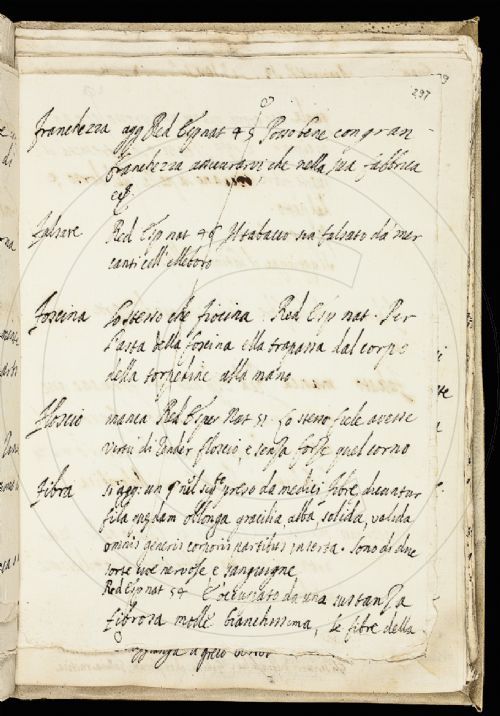 297
franchezza agg Red Esp nat 45 Posso bene con gran
franchezza assicurarvi che nella sua fabbrica
Falsare Red Esp nat 49 Il tabacco sia falsato da mer
canti coll'elleboro
Foscina Lo stesso che fiocina. Red Esp nat. Per
l'asta della foscina ella trapassa dal corpo
della torpedine alla mano
Floscio manca Red Esper Nat 51 Lo stesso fiele avesse
virtù di render floscio, e senza forze quel corno
Fibra si agg: un § nel sig.to preso da medici fibre dicuntur
fila quedam oblonga gracilia alba, solida, valida
omnis generis corporis partibus inserta. Sono di due
sorte cioè nervose e sanguigne
Red Esp nat 54 È circondato da una sustanza
fibrosa molle bianchissima, Le fibre della